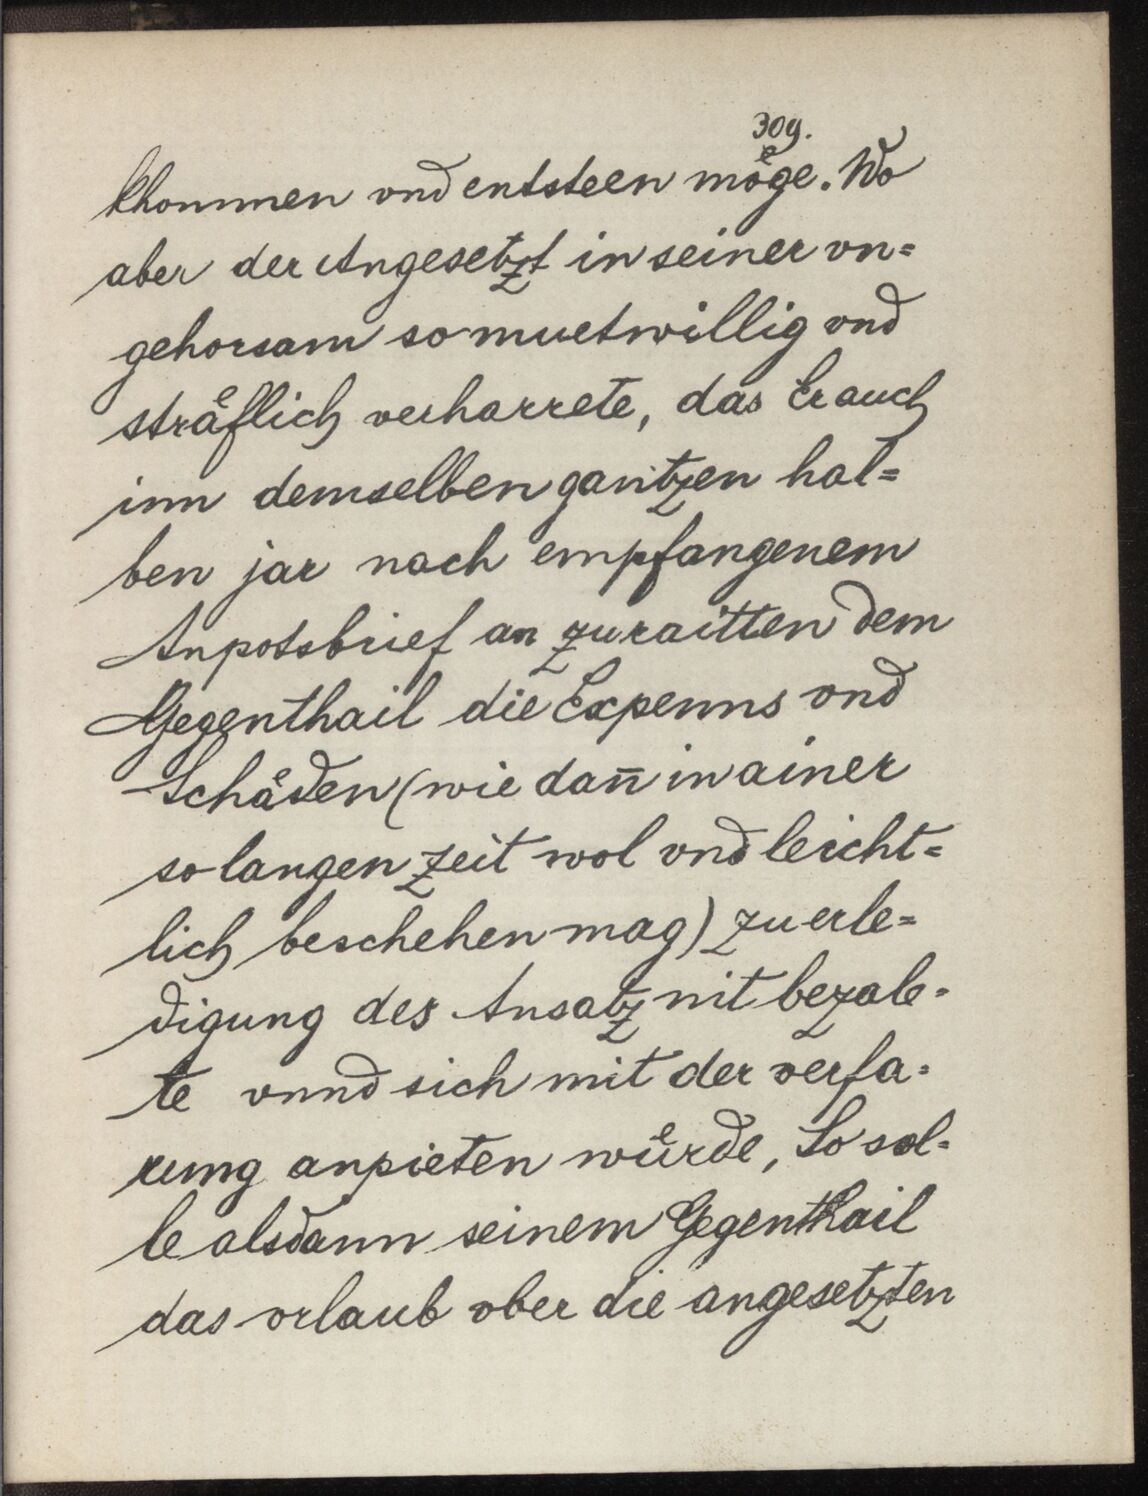 309.
khommen vnd entsteen moͤge. Wo
aber der Angesetzt in seiner vn=
gehorsam so muetwillig vnd
straͤflich verharrete, das Er auch
inn demselben gantzen hal=
ben jar nach empfangenem
Anpotsbrief an zuraitten dem
Gegenthail die Expenns vnd
Schaͤden (wie dan̄ in ainer
so langen zeit wol vnd leicht=
lich beschehen mag) zu erle=
digung des Ansatz nit bezale=
te vnnd sich mit der verfa=
rung anpieten wuͤrde, So sol=
le alsdann seinem Gegenthail
das vrlaub vber die angesetzten